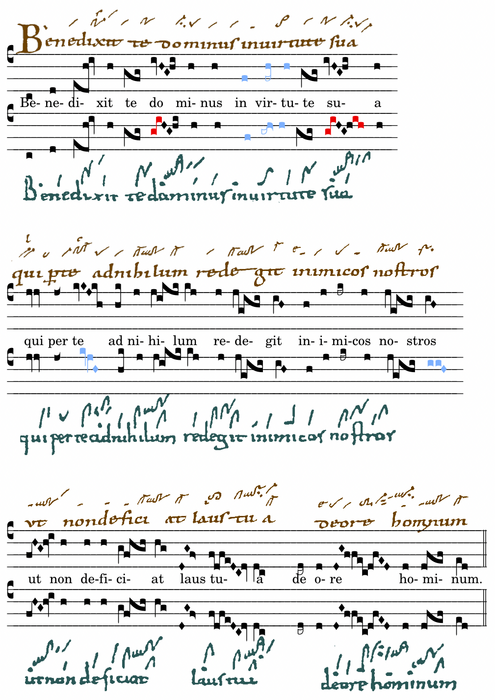 Benedixit te dominus in uirtute sua
Be- ne- di- xit te do mi- nus in vir- tu- te su- a
Benedixit te dominus in uirtute sua
qui pte adnihilum redegit inimicos nostros
qui per te ad ni- hi- lum re- de- git in- i- mi- cos no- stros
qui per te adnihilum redegit inimicos nostros
ut non defici at laus tu a deore hominum
ut non de- fi- ci- at laus tu- a de o- re ho- mi- num.
ut non deficiat laus tua deore hominum